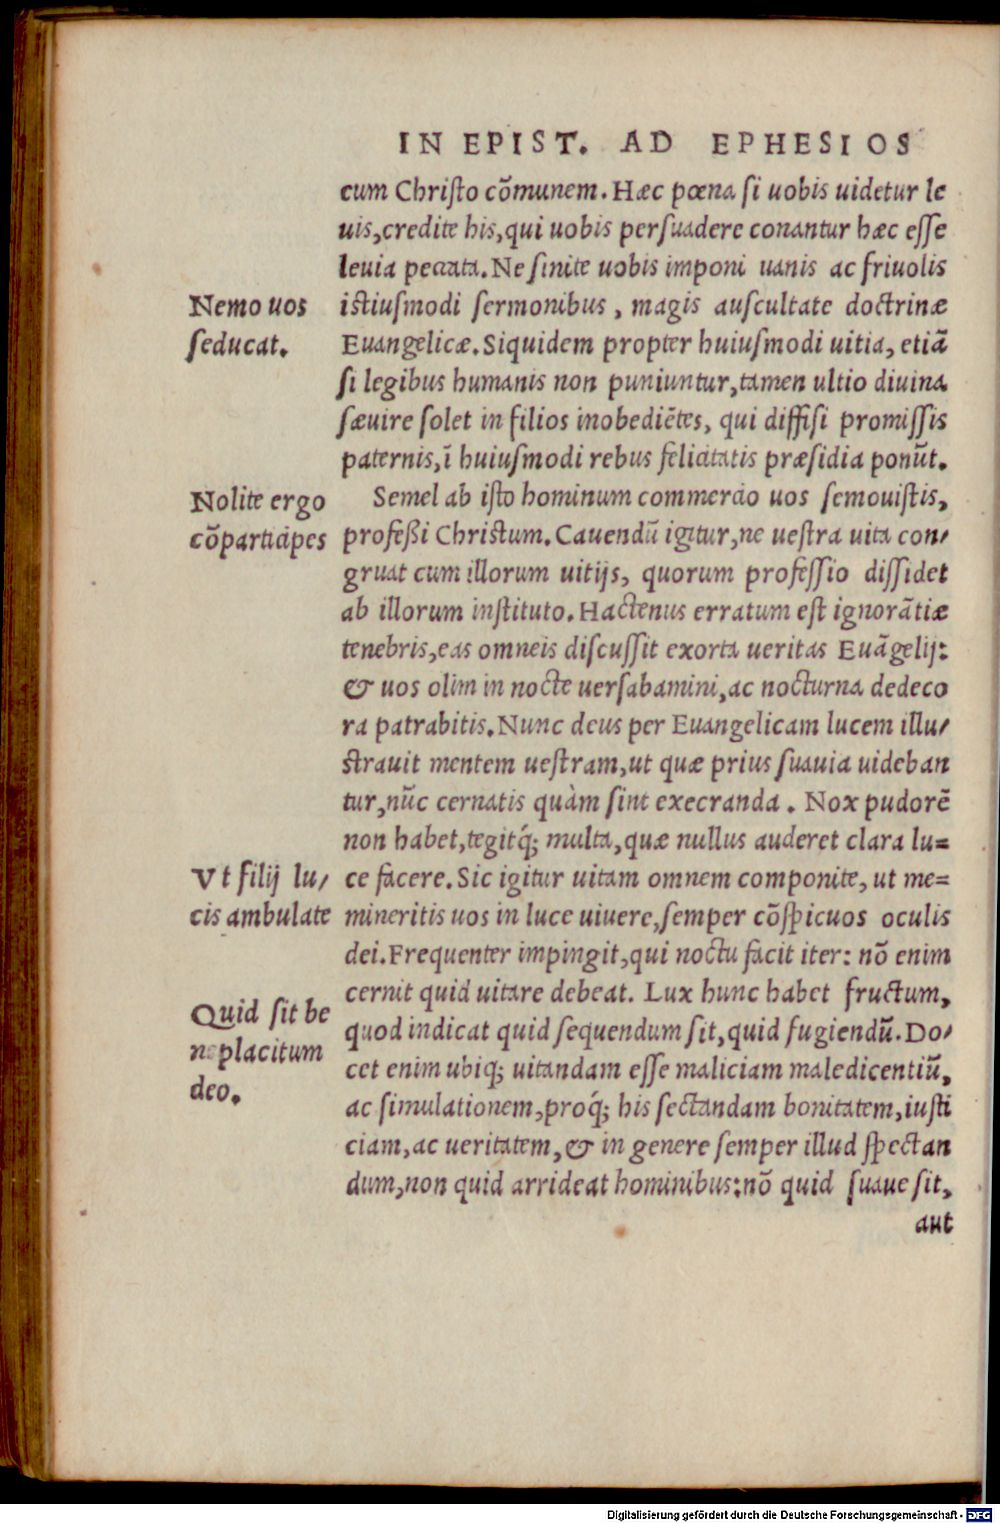 IN EPIST. AD EPHESIOS
cum Christo cōmunem. Hæc pœna si uobis uidetur le
uis, credite his, qui uobis persuadere conantur hæc esse
leuia peccata. Ne sinite uobis imponi uanis ac friuolis
Nemo uos
istiusmodi sermonibus, magis auscultate doctrinæ
seducat.
Euangelicæ. Siquidem propter huiusmodi uitia, etiā
si legibus humanis non puniuntur, tamen ultio diuina
sæuire solet in filios inobediētes, qui diffisi promissis
paternis, ī huiusmodi rebus felicitatis præsidia ponūt.
Nolite ergo
Semel ab isto hominum commercio uos semouistis,
cōparticipes
professi Christum. Cauendū igitur, ne uestra uita con/
gruat cum illorum uitijs, quorum professio dissidet
ab illorum instituto. Hactenus erratum est ignorātiæ
tenebris, eas omneis discussit exorta ueritas Euāgelij:
& uos olim in nocte uersabamini, ac nocturna dedeco
ra patrabitis. Nunc deus per Euangelicam lucem illu/
strauit mentem uestram, ut quæ prius suauia uideban
tur, nūc cernatis quàm sint execranda. Nox pudorē
non habet, tegitq́; multa, quæ nullus auderet clara lu=
Vt filij lu/
ce facere. Sic igitur uitam omnem componite, ut me=
cis ambulate
mineritis uos in luce uiuere, semper cōspicuos oculis
dei. Frequenter impingit, qui noctu facit iter: nō enim
cernit quid uitare debeat. Lux hunc habet fructum,
Quid sit be
quod indicat quid sequendum sit, quid fugiendū. Do/
neplacitum
cet enim ubiq; uitandam esse maliciam maledicentiū,
deo.
ac simulationem, proq́; his sectandam bonitatem, iusti
ciam, ac ueritatem, & in genere semper illud spectan
dum, non quid arrideat hominibus: nō quid suaue sit,
aut
Digitalisierung gefördert durch die Deutsche Forschungsgemeinschaft - DFG